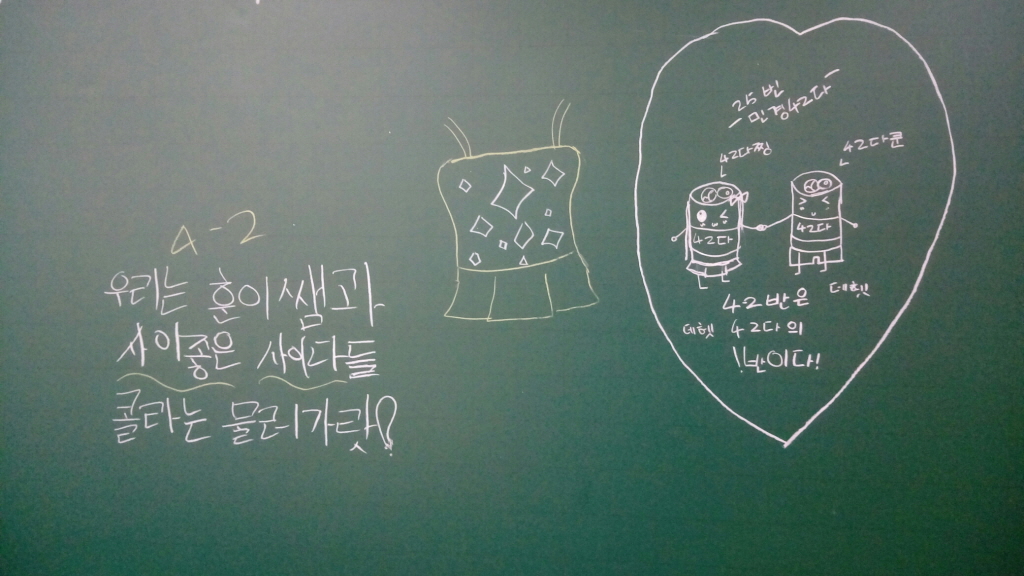 4-2
우리는 훈이쌤과
사이좋은 사이다들
콜타는 물러가랏!
25번
- 민경42다 -
42다찡
42다쿤
42다
42다
42반은
데헷
데헷
42다의
반이다!